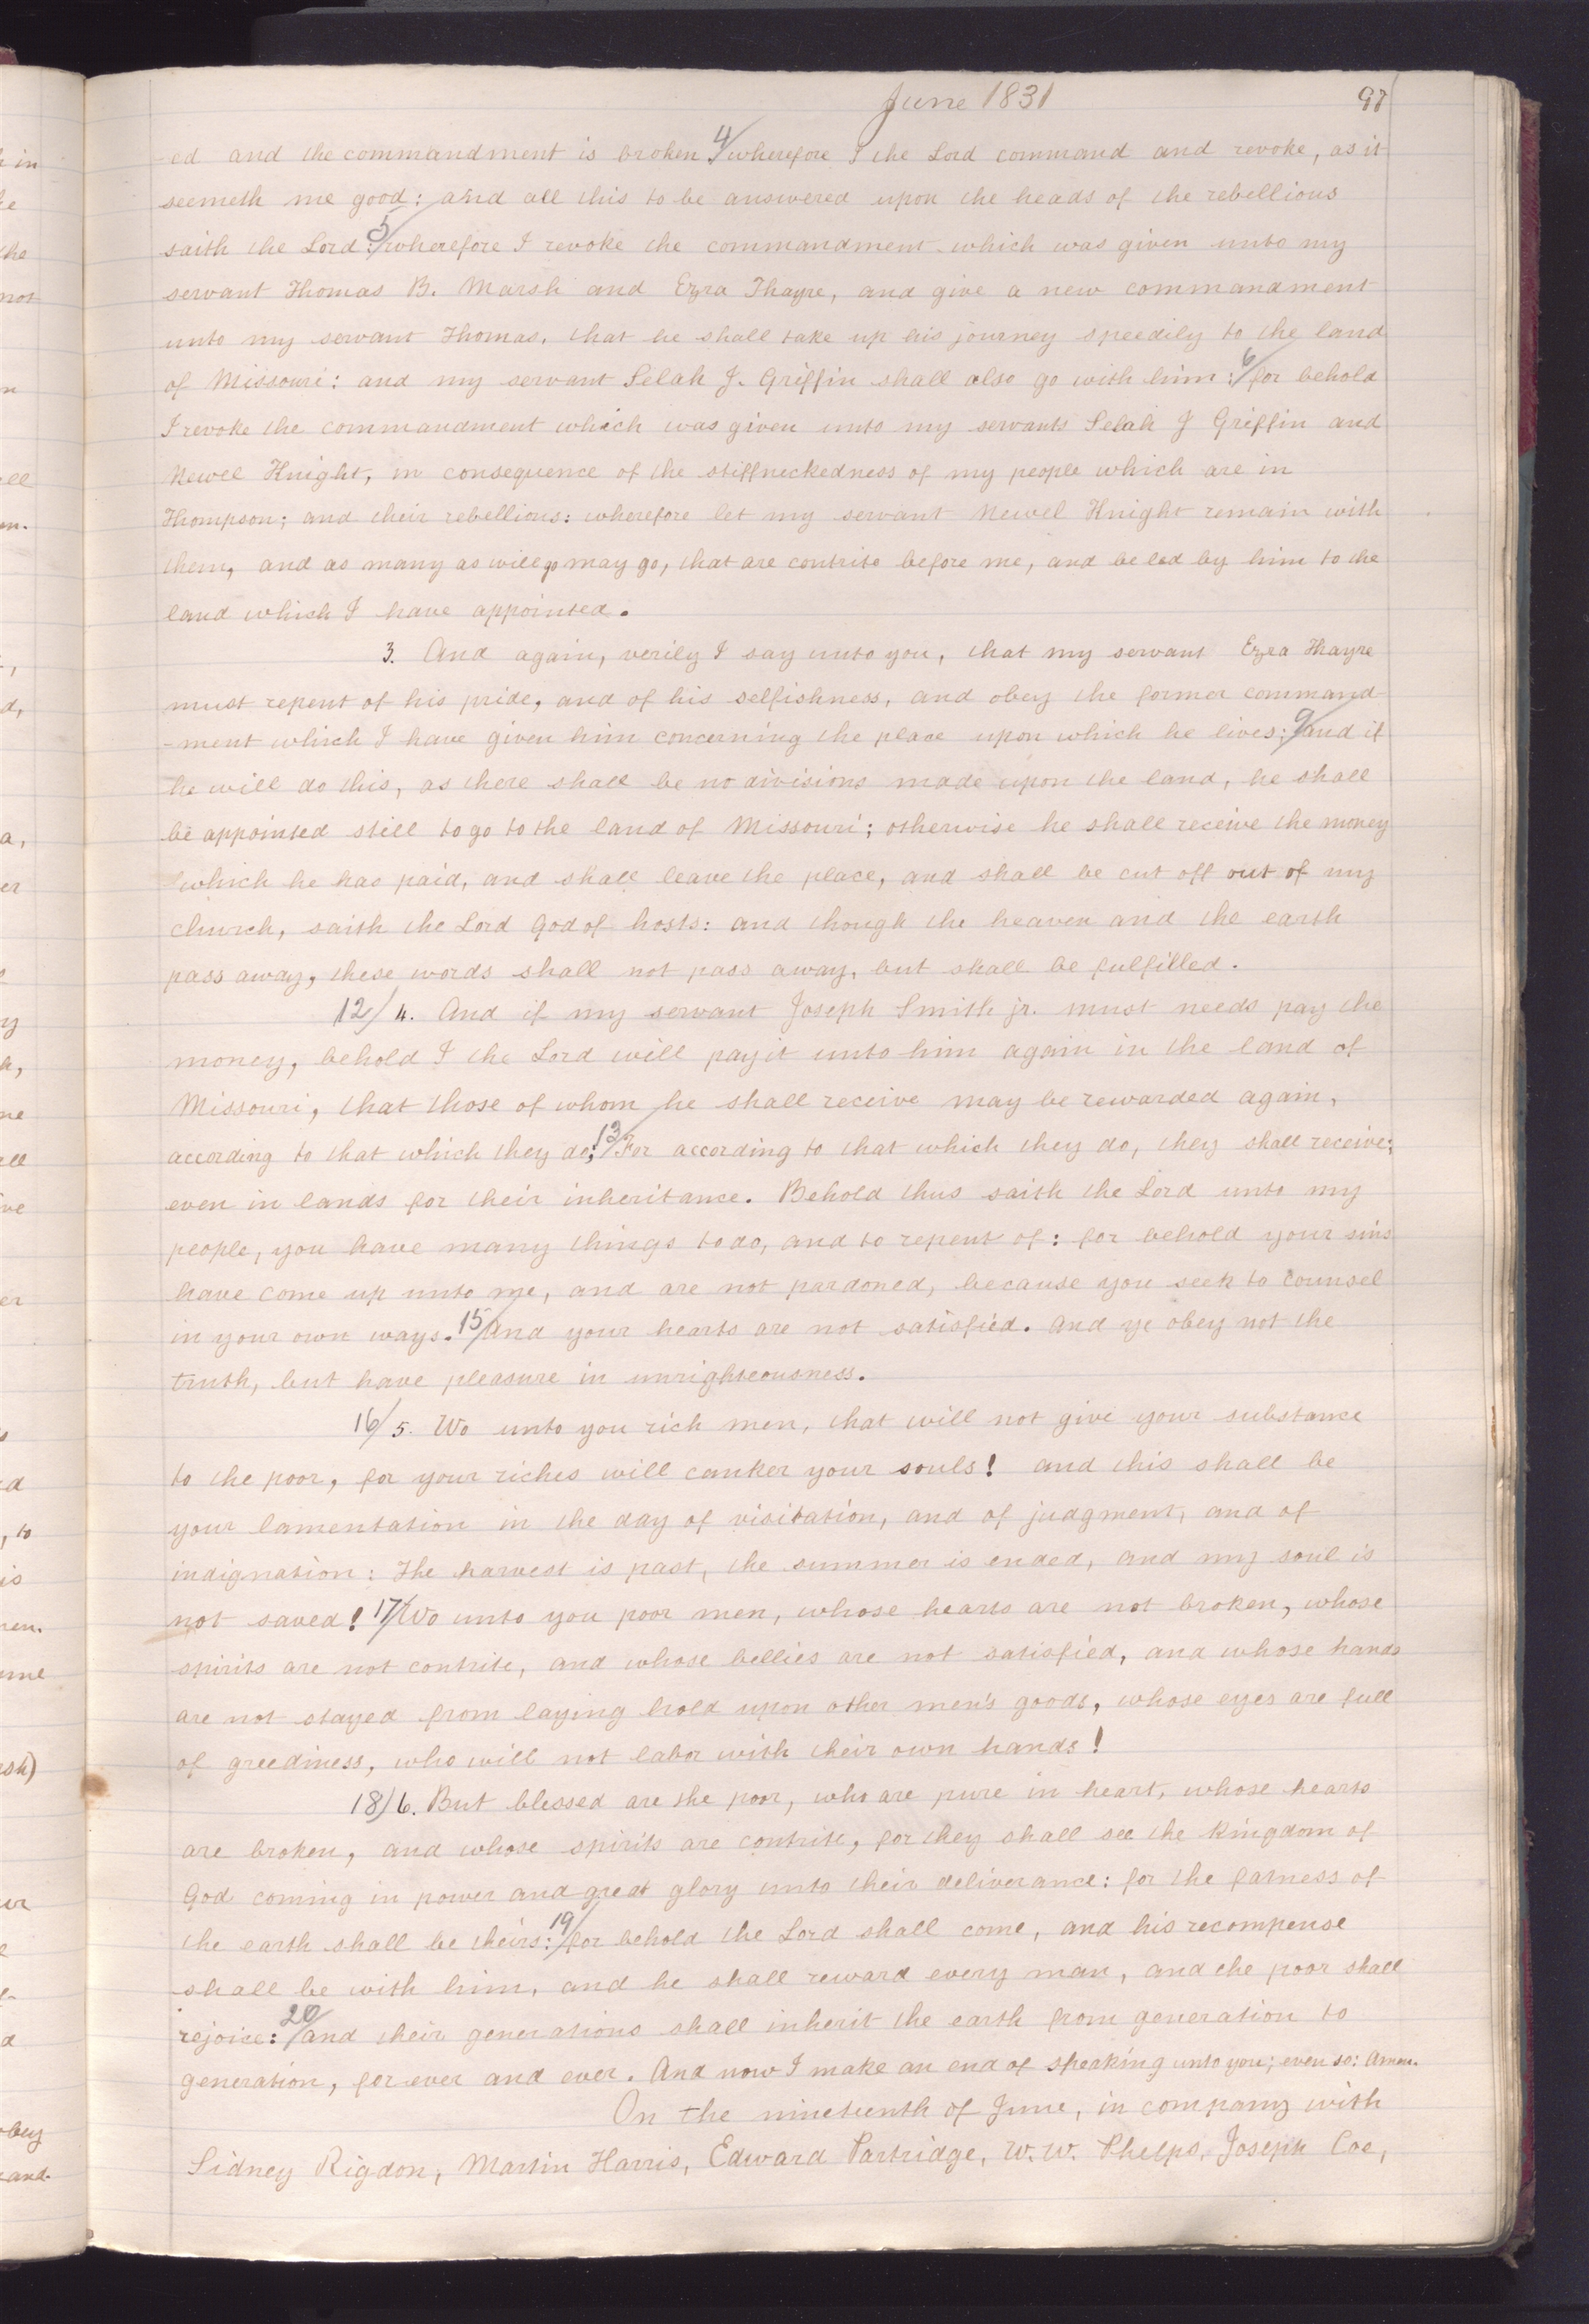 June 1831 97
-ed and the commandment is broken 4/ wherefore I the Lord command and revoke, as it
seemeth me good; and all this to be answered upon the heads of the rebellious
saith the Lord: 5/ wherefore I revoke the commandment which was given unto my
servant Thomas B. Marsh and Ezra Thayre, and give a new commandment
unto my servant Thomas, that he shall take up his journey speedily to the land
of Missouri: and my servant Selah J. Griffin shall also go with him: 6/ for behold
I revoke the commandment which was given unto my servants Selah J Griffin and
Newel Knight, in consequence of the stiffneckedness of my people which are in
Thompson; and their rebellions: wherefore let my servant Newel Knight remain with
them, and as many as will go may go, that are contrite before me, and be led by him to the
land which I have appointed.
3. And again, verily I say unto you, that my servant Ezra Thayre
must repent of his pride, and of his selfishness, and obey the former command
-ment which I have given him concerning the place upon which he lives; 9/ and if
he will do this, as there shall be no divisions made upon the land, he shall
be appointed still to go to the land of Missouri; otherwise he shall receive the money
which he has paid, and shall leave the place, and shall be cut off out of my
church, saith the Lord God of hosts: and though the heaven and the earth
pass away, these words shall not pass away, but shall be fulfilled.
12/ 4. And if my servant Joseph Smith jr. must needs pay the
money, behold I the Lord will pay it unto him again in the land of
Missouri, that those of whom he shall receive may be rewarded again,
according to that which they do; 13/ For according to that which they do, they shall receive;
even in lands for their inheritance. Behold thus saith the Lord unto my
people, you have many things to do, and to repent of: for behold your sins
have come up unto me, and are not pardoned, because you seek to counsel
in your own ways. 15/ And your hearts are not satisfied. And ye obey not the
truth, but have pleasure in unrighteousness.
16/ 5. Wo unto you rich men, that will not give your substance
to the poor, for your riches will canker your souls! and this shall be
your lamentation in the day of visitation, and of judgment, and of
indignation: The harvest is past, the summer is ended, and my soul is
not saved! 17/ Wo unto you poor men, whose hearts are not broken, whose
spirits are not contrite, and whose bellies are not satisfied, and whose hands
are not stayed from laying hold upon other men's goods, whose eyes are full
of greediness, who will not labor with their own hands!
18/ 6. But blessed are the poor, who are pure in heart, whose hearts
are broken, and whose spirits are contrite, for they shall see the kingdom of
God coming in power and great glory unto their deliverance: for the fatness of
the earth shall be theirs: 19/ for behold the Lord shall come, and his recompense
shall be with him, and he shall reward every man, and the poor shall
rejoice: 20/ and their generations shall inherit the earth from generation to
generation, for ever and ever. And now I make an end of speaking unto you; even so: Amen.
On the nineteenth of June, in company with
Sidney Rigdon, Martin Harris, Edward Partridge, W. W. Phelps, Joseph Coe,